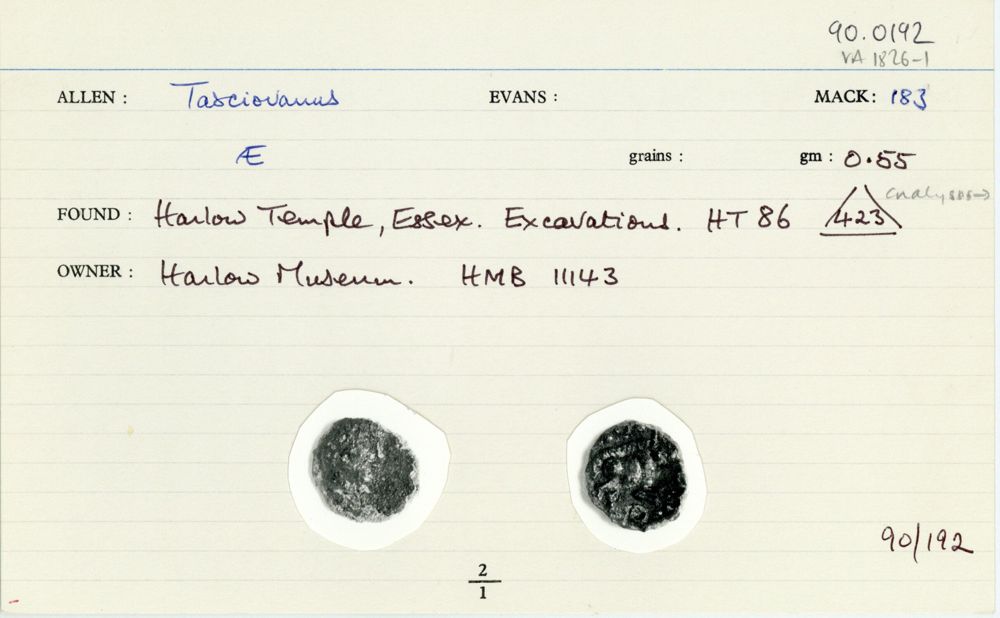 90.0192
VA 1826-1
ALLEN : Tasciovanus EVANS : MACK: 183
Æ grains : gm : 0.55
analysis→
FOUND : Harlow Temple, Essex. Excavations. HT 86 423
OWNER : Harlow Museum. HMB 11143
90/192
2
1